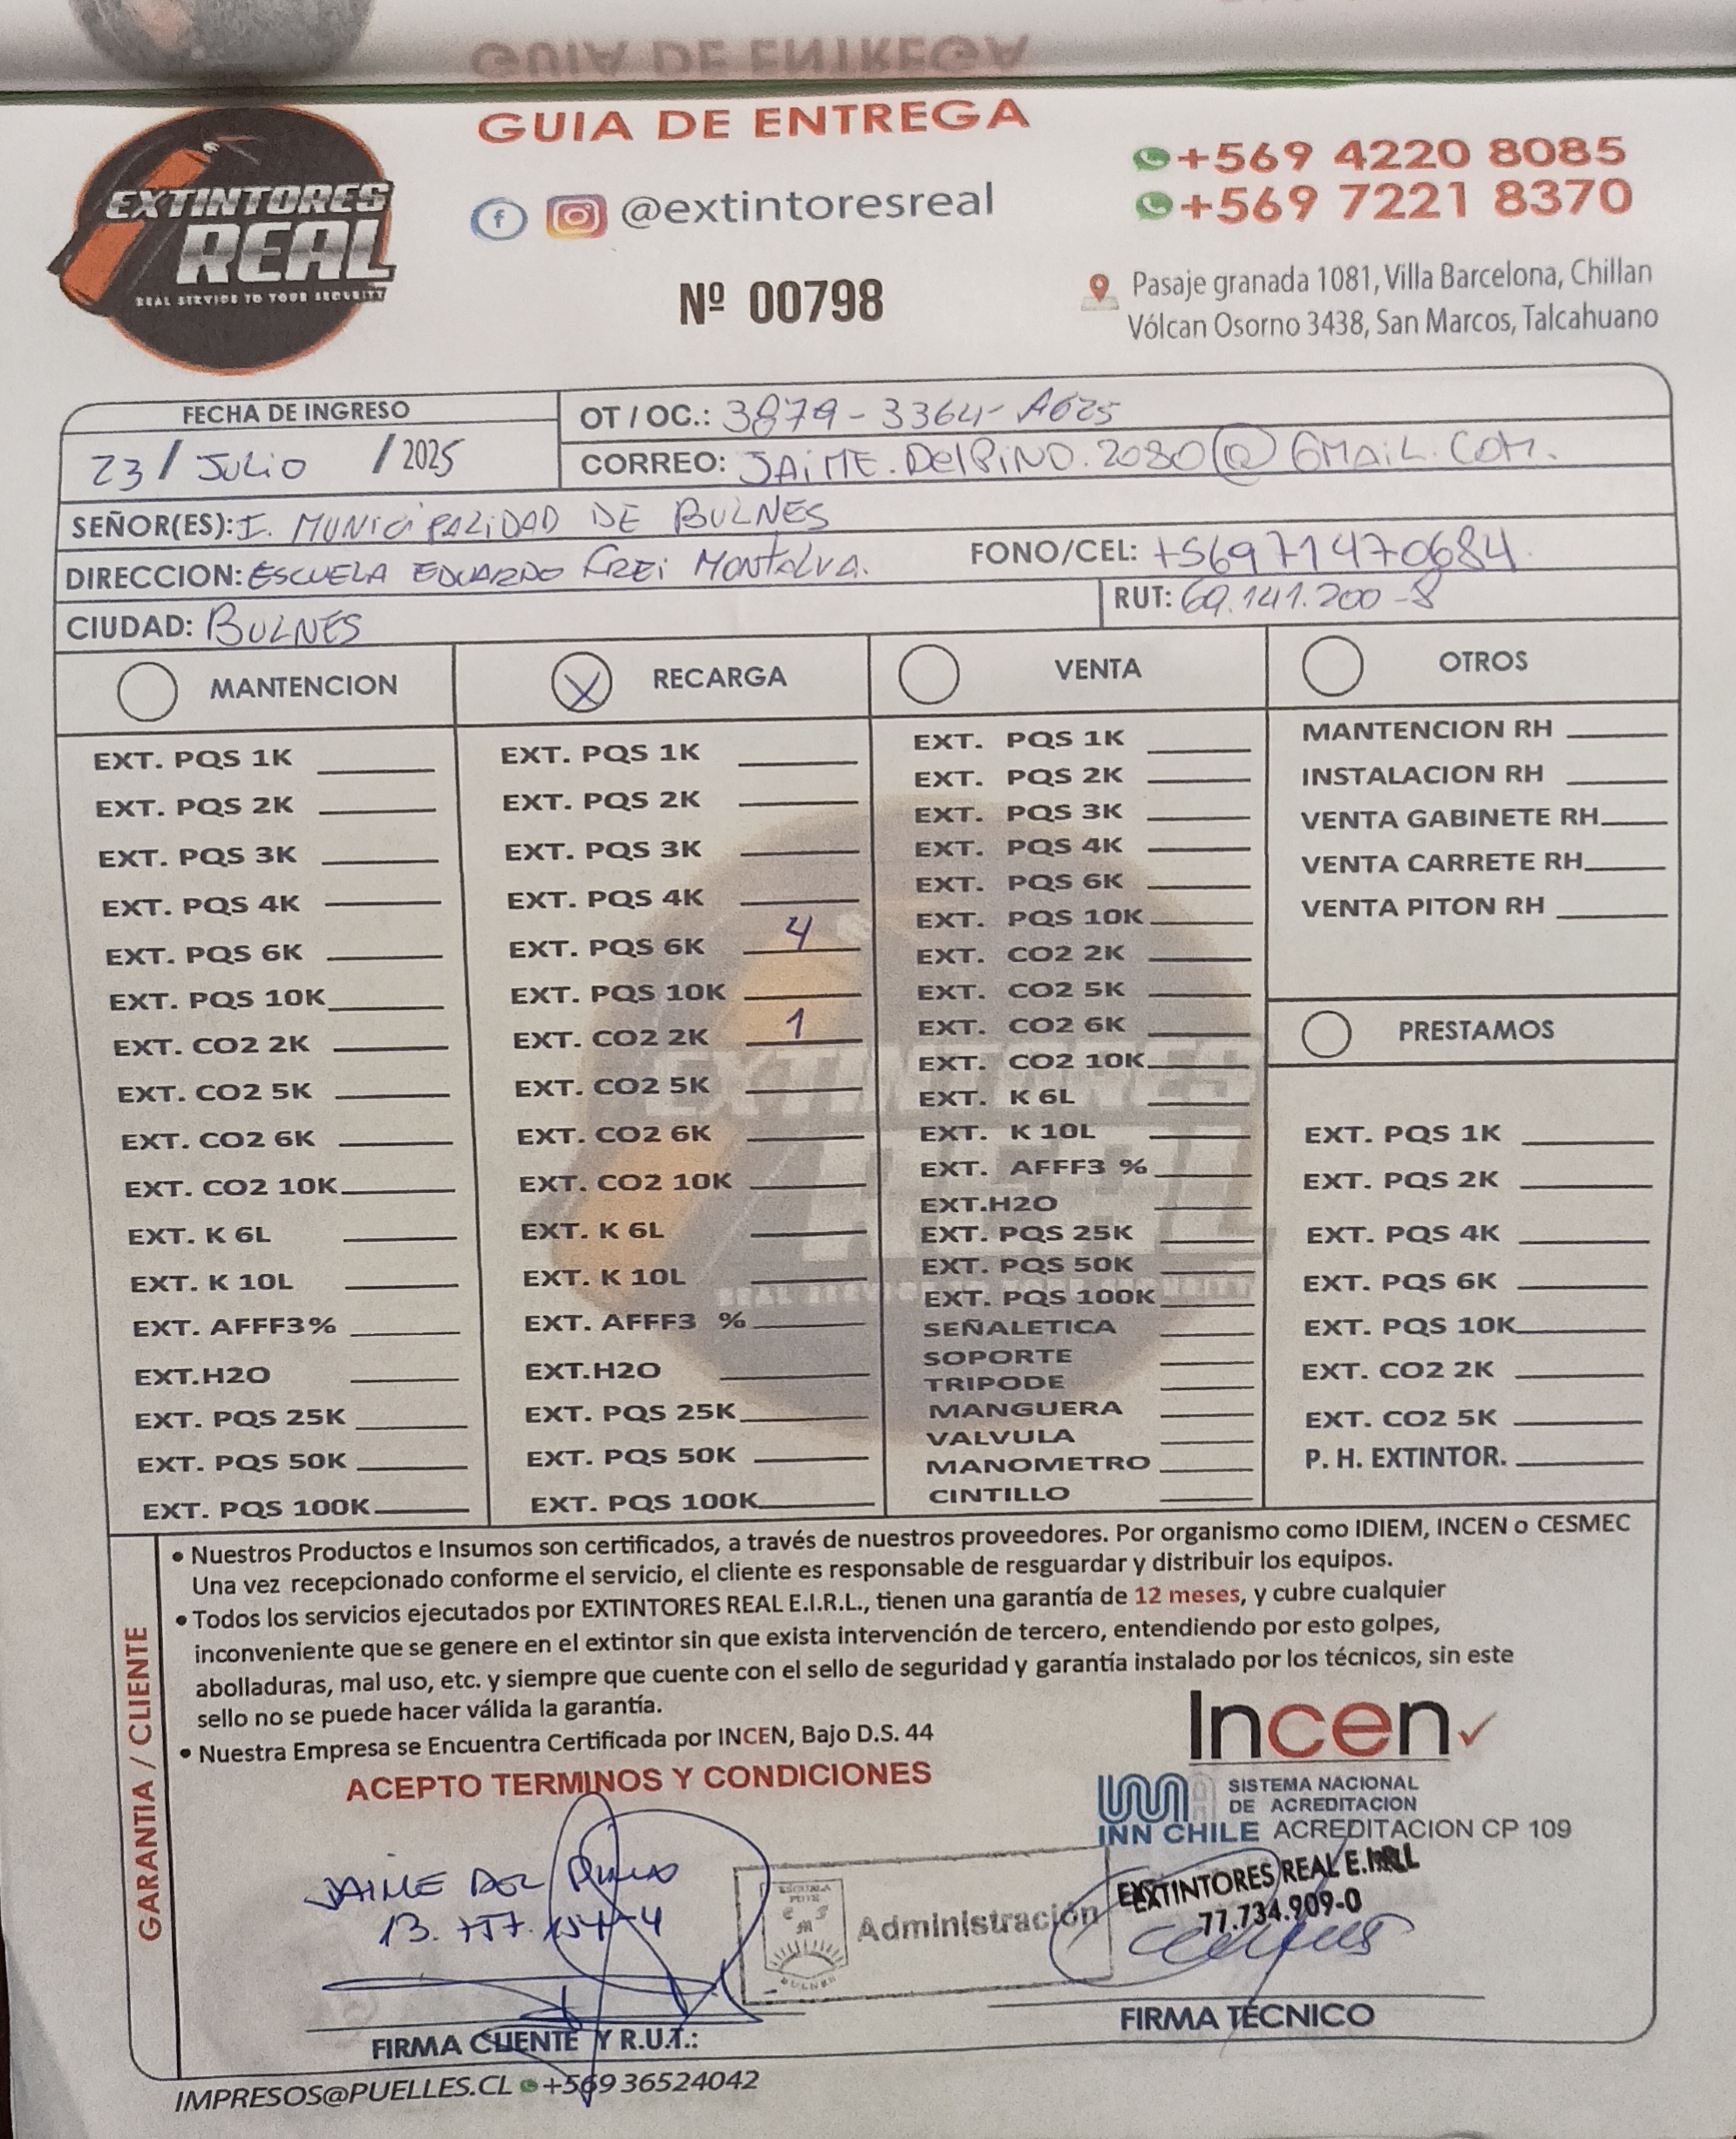 GUIA DE ENTREGA
EXTINTORES
REAL
REAL SERVICE TO YOUR SECURITY
@extintoresreal
+569 4220 8085
+569 7221 8370
Nº 00798
Pasaje granada 1081, Villa Barcelona, Chillan
Vólcan Osorno 3438, San Marcos, Talcahuano
FECHA DE INGRESO
23 / JULIO / 2025
OT / OC.: 3879-3364-AG25
CORREO: JAIME.DelPINO.2080@GMAIL.COM.
SEÑOR(ES): I. MUNICIPALIDAD DE BULNES
DIRECCION: ESCUELA EDUARDO FREI MONTALVA.
FONO/CEL: +56971470684
CIUDAD: BULNES
RUT: 69.141.200-8
MANTENCION
EXT. PQS 1K
EXT. PQS 2K
EXT. PQS 3K
EXT. PQS 4K
EXT. PQS 6K
EXT. PQS 10K
EXT. CO2 2K
EXT. CO2 5K
EXT. CO2 6K
EXT. CO2 10K
EXT. K 6L
EXT. K 10L
EXT. AFFF3%
EXT.H2O
EXT. PQS 25K
EXT. PQS 50K
EXT. PQS 100K
X RECARGA
EXT. PQS 1K
EXT. PQS 2K
EXT. PQS 3K
EXT. PQS 4K
EXT. PQS 6K 4
EXT. PQS 10K
EXT. CO2 2K 1
EXT. CO2 5K
EXT. CO2 6K
EXT. CO2 10K
EXT. K 6L
EXT. K 10L
EXT. AFFF3 %
EXT.H2O
EXT. PQS 25K
EXT. PQS 50K
EXT. PQS 100K
VENTA
EXT. PQS 1K
EXT. PQS 2K
EXT. PQS 3K
EXT. PQS 4K
EXT. PQS 6K
EXT. PQS 10K
EXT. CO2 2K
EXT. CO2 5K
EXT. CO2 6K
EXT. CO2 10K
EXT. K 6L
EXT. K 10L
EXT. AFFF3 %
EXT.H2O
EXT. PQS 25K
EXT. PQS 50K
EXT. PQS 100K
SEÑALETICA
SOPORTE
TRIPODE
MANGUERA
VALVULA
MANOMETRO
CINTILLO
OTROS
MANTENCION RH
INSTALACION RH
VENTA GABINETE RH
VENTA CARRETE RH
VENTA PITON RH
PRESTAMOS
EXT. PQS 1K
EXT. PQS 2K
EXT. PQS 4K
EXT. PQS 6K
EXT. PQS 10K
EXT. CO2 2K
EXT. CO2 5K
P. H. EXTINTOR.
GARANTIA / CLIENTE
• Nuestros Productos e Insumos son certificados, a través de nuestros proveedores. Por organismo como IDIEM, INCEN o CESMEC
Una vez recepcionado conforme el servicio, el cliente es responsable de resguardar y distribuir los equipos.
• Todos los servicios ejecutados por EXTINTORES REAL E.I.R.L., tienen una garantía de 12 meses, y cubre cualquier
inconveniente que se genere en el extintor sin que exista intervención de tercero, entendiendo por esto golpes,
abolladuras, mal uso, etc. y siempre que cuente con el sello de seguridad y garantía instalado por los técnicos, sin este
sello no se puede hacer válida la garantía.
• Nuestra Empresa se Encuentra Certificada por INCEN, Bajo D.S. 44
ACEPTO TERMINOS Y CONDICIONES
Incen
INN CHILE
SISTEMA NACIONAL
DE ACREDITACION
ACREDITACION CP 109
JAIME DEL PINO
Administración
BULNES
EXTINTORES REAL E.I.R.L
77.734.909-0
FIRMA CLIENTE Y R.U.T.:
FIRMA TÉCNICO
IMPRESOS@PUELLES.CL +569 36524042